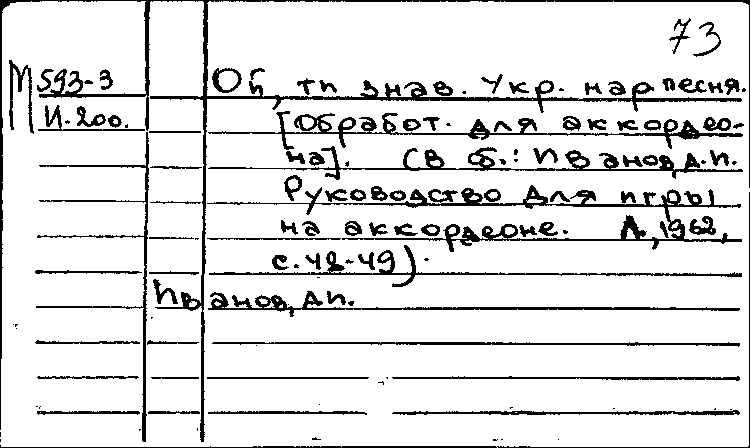 73
М 593-3
И-200.
Ой, ти знав. Укр. нар. песня.
[Обработ. для аккордео-
на]. (В сб.: Иванов, А.П.
Руководство для игры
на аккордеоне. Л., 1962,
с. 48-49).
Иванов, А.П.